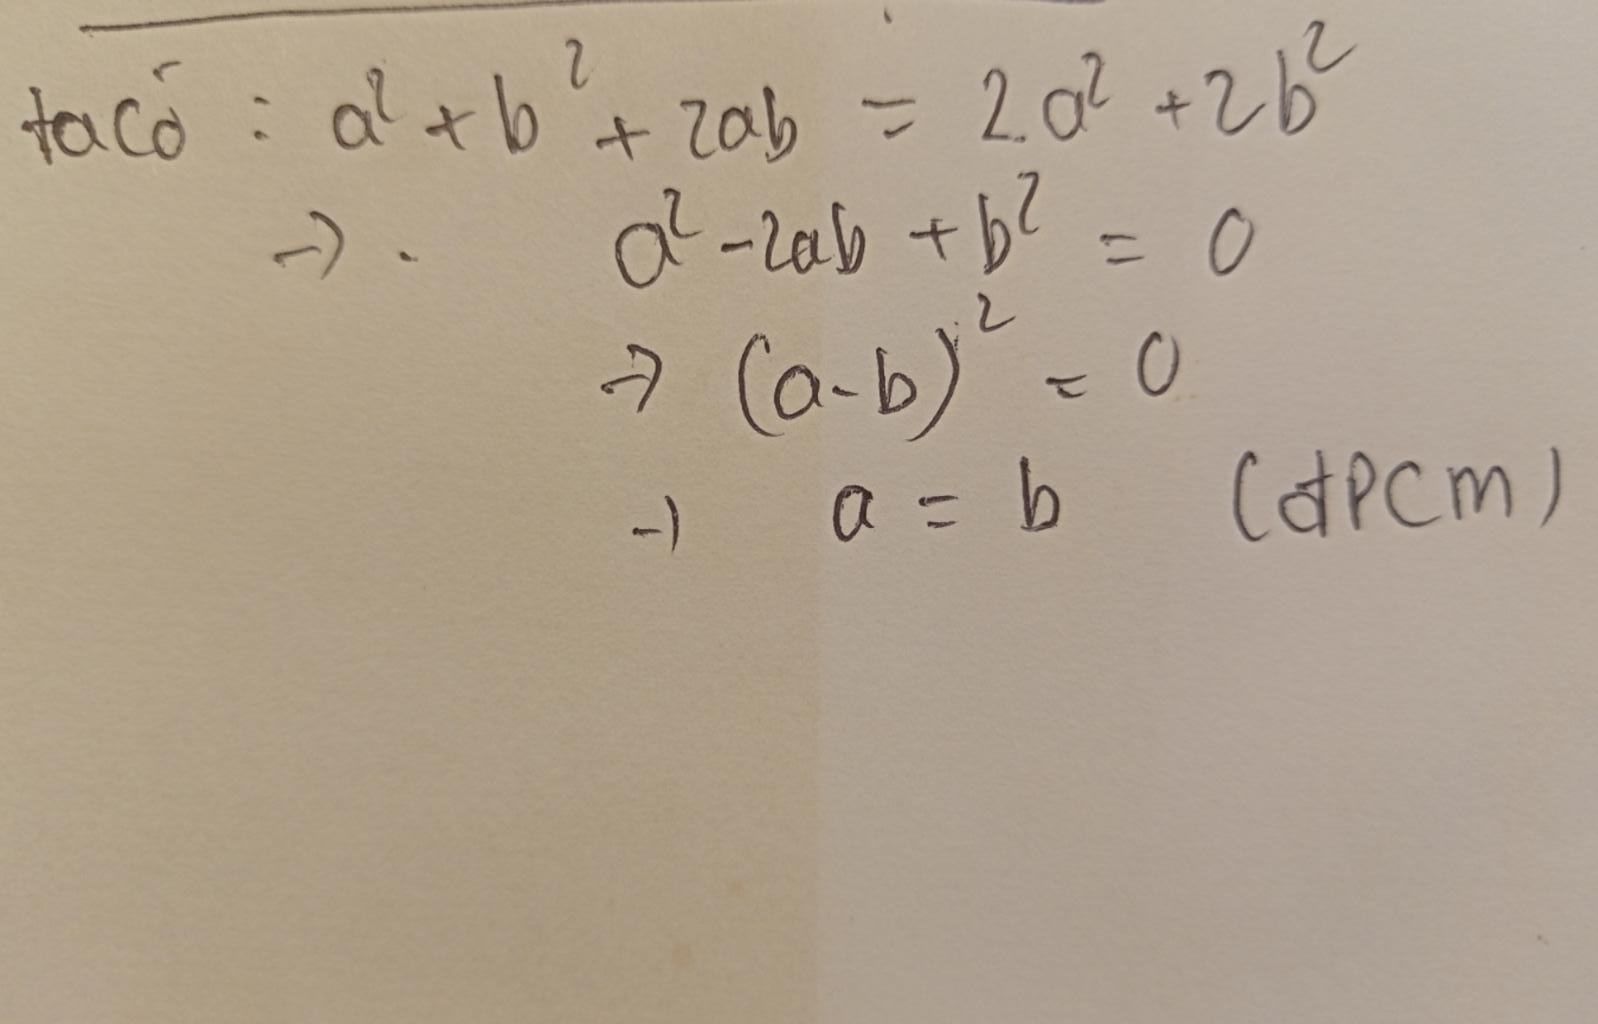 ta có : a² + b² + 2ab = 2.a² + 2b²
→ . a² - 2ab + b² = 0
→ (a - b)² = 0
→ a = b (đPCM)